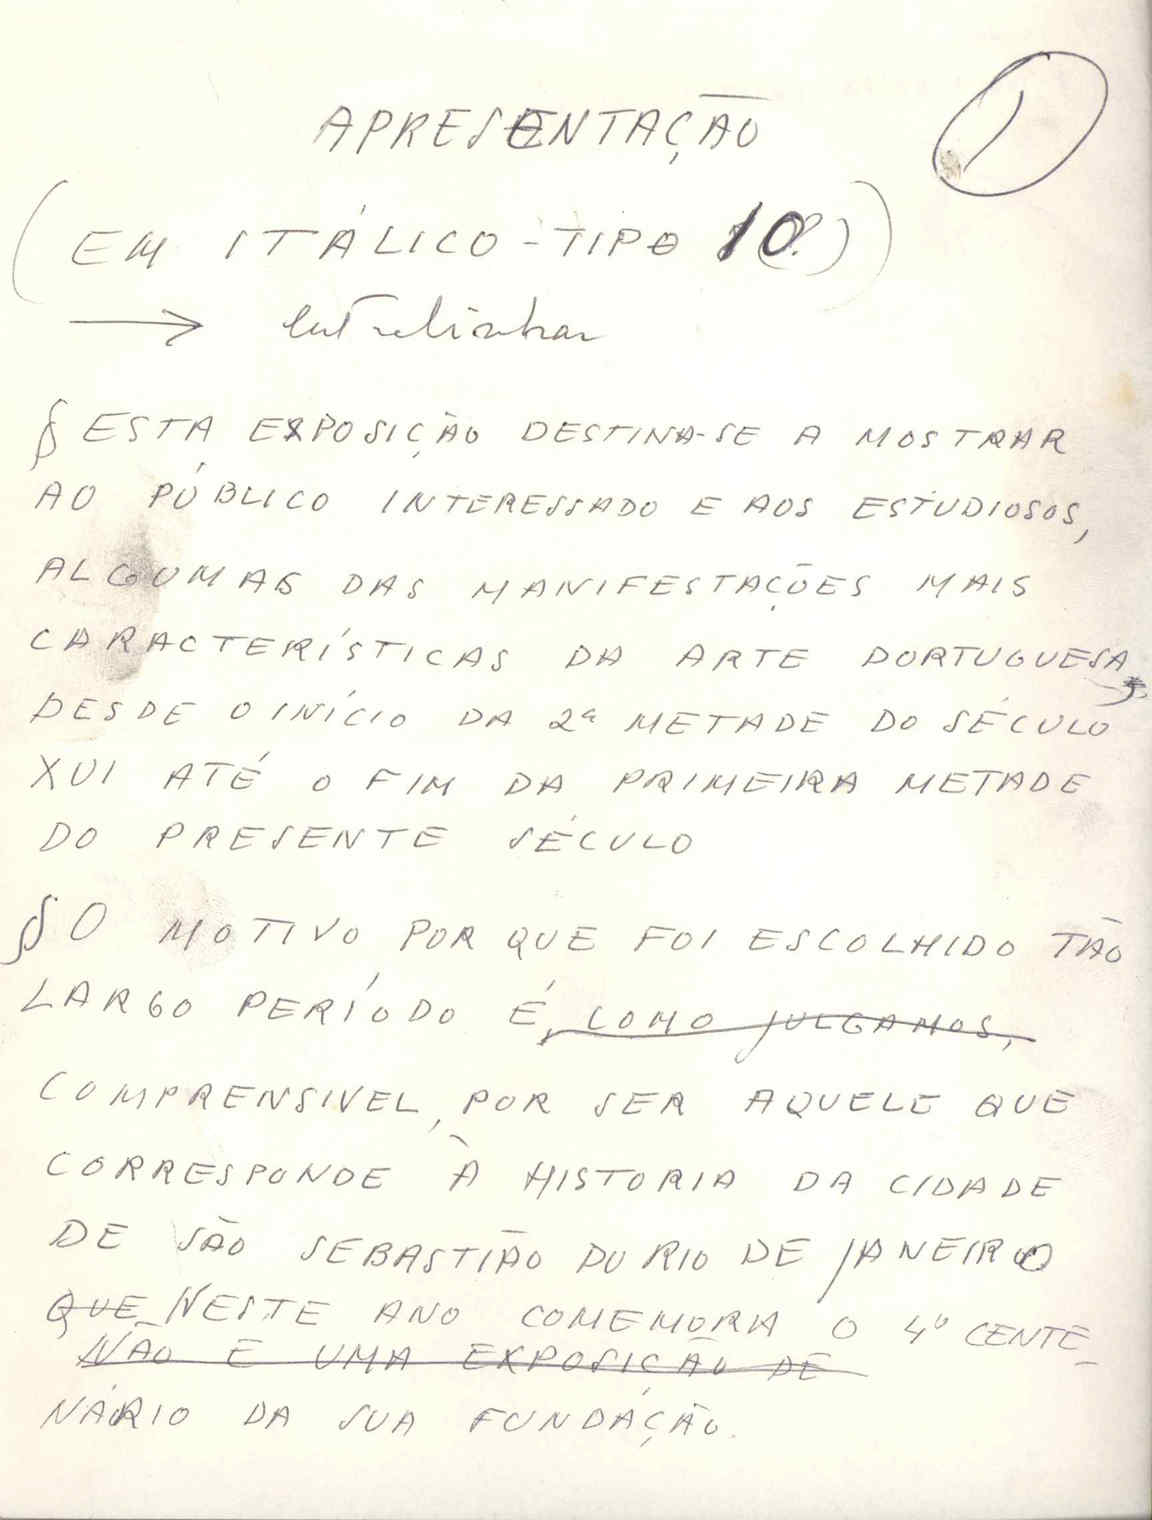 1
APRESENTAÇÃO
(EM ITÁLICO - TIPO 10(?))
→ entrelinhar
§ ESTA EXPOSIÇÃO DESTINA-SE A MOSTRAR
AO PÚBLICO INTERESSADO E AOS ESTUDIOSOS,
ALGUMAS DAS MANIFESTAÇÕES MAIS
CARACTERÍSTICAS DA ARTE PORTUGUESA,
DESDE O INÍCIO DA 2ª METADE DO SÉCULO
XVI ATÉ O FIM DA PRIMEIRA METADE
DO PRESENTE SÉCULO
§ O MOTIVO POR QUE FOI ESCOLHIDO TÃO
LARGO PERÍODO É, COMO JULGAMOS,
COMPRENSIVEL, POR SER AQUELE QUE
CORRESPONDE À HISTORIA DA CIDADE
DE SÃO SEBASTIÃO DO RIO DE JANEIRO
QUE NESTE ANO COMEMORA O 4º CENTE-
NÃO E UMA EXPOSIÇÃO DE
NÁRIO DA SUA FUNDAÇÃO.